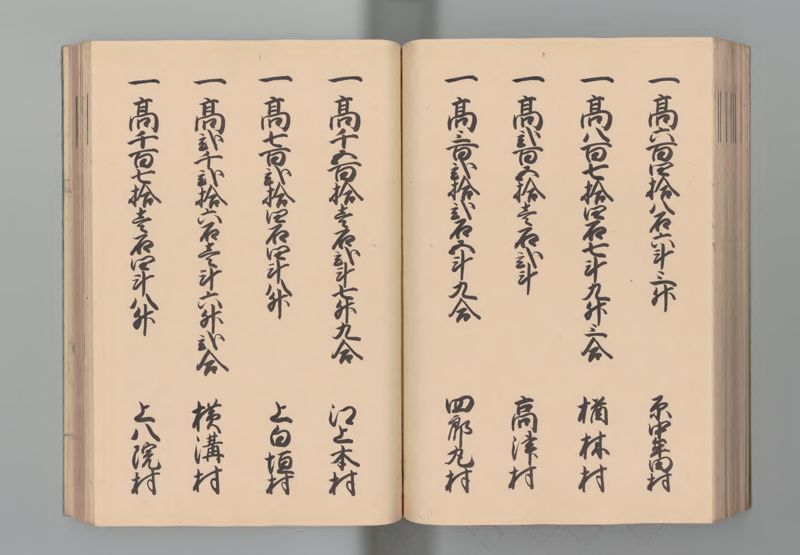 一高六百四拾八石六斗三升 原中牟田村
一高八百七拾四石七斗九升三合 楢林村
一高弐百五拾壱石弐斗 高津村
一高三百弐拾弐石五斗九合 四郎丸村
一高千五百拾壱石弐斗七升九合 江上本村
一高七百弐拾四石四斗八升 上白垣村
一高弐千弐拾六石壱斗六升弐合 横溝村
一高千百七拾壱石四斗八升 上八院村